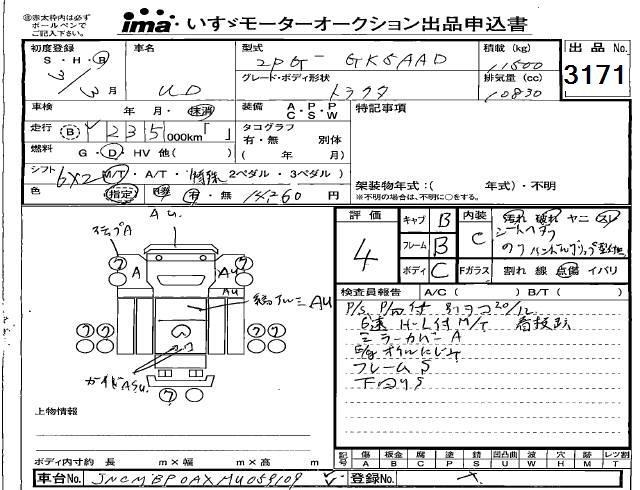 ㊟赤太枠内は必ず
ボールペンで
ご記入ください。
ima いすゞモーターオークション出品申込書
初度登録
S・H・R
3/3月
車名
UD
型式
2PG- GK5AAD
グレード・ボディ形状
トラクタ
積載 (kg)
11500
排気量 (cc)
10830
出品 No.
3171
車検 年・月・抹消
装備 A・P・P
C・S・W
特記事項
走行 235000km「 」
タコグラフ
有・無 別体
( 年 月)
燃料 G・D・HV 他( )
シフト 6X2 M/T・A/T・特殊 2ペダル・3ペダル)
色 指定 有・無 14,260 円
架装物年式:( 年式)・不明
※不明の場合は、不明に○をする。
評価
4
キャブ B
フレーム B
ボディ C
内装 C
汚れ 破れ ヤニ スレ
シートヘタリ
Fガラス 割れ 線 点傷 イバリ
検査員報告 A/C( ) B/T( )
P/S P/W付
6速 H-L付 M/T
ミラーカバー A
E/g オイルにじみ
フレーム S
下回り S
Au.
ステップA
⑦ ⑦
A Au
縞アルミ Au
⑦ ⑦ ⑦ ⑦
ガイドASu.
⑦
上物情報
ボディ内寸約 長 m×幅 m×高 m
記号 傷 板金 腐 塗 錆 凹凸曲 波 穴 跡 レツ割
A B C P S U W H M T
車台No. JNCMBP0AXMU059109
登録No.